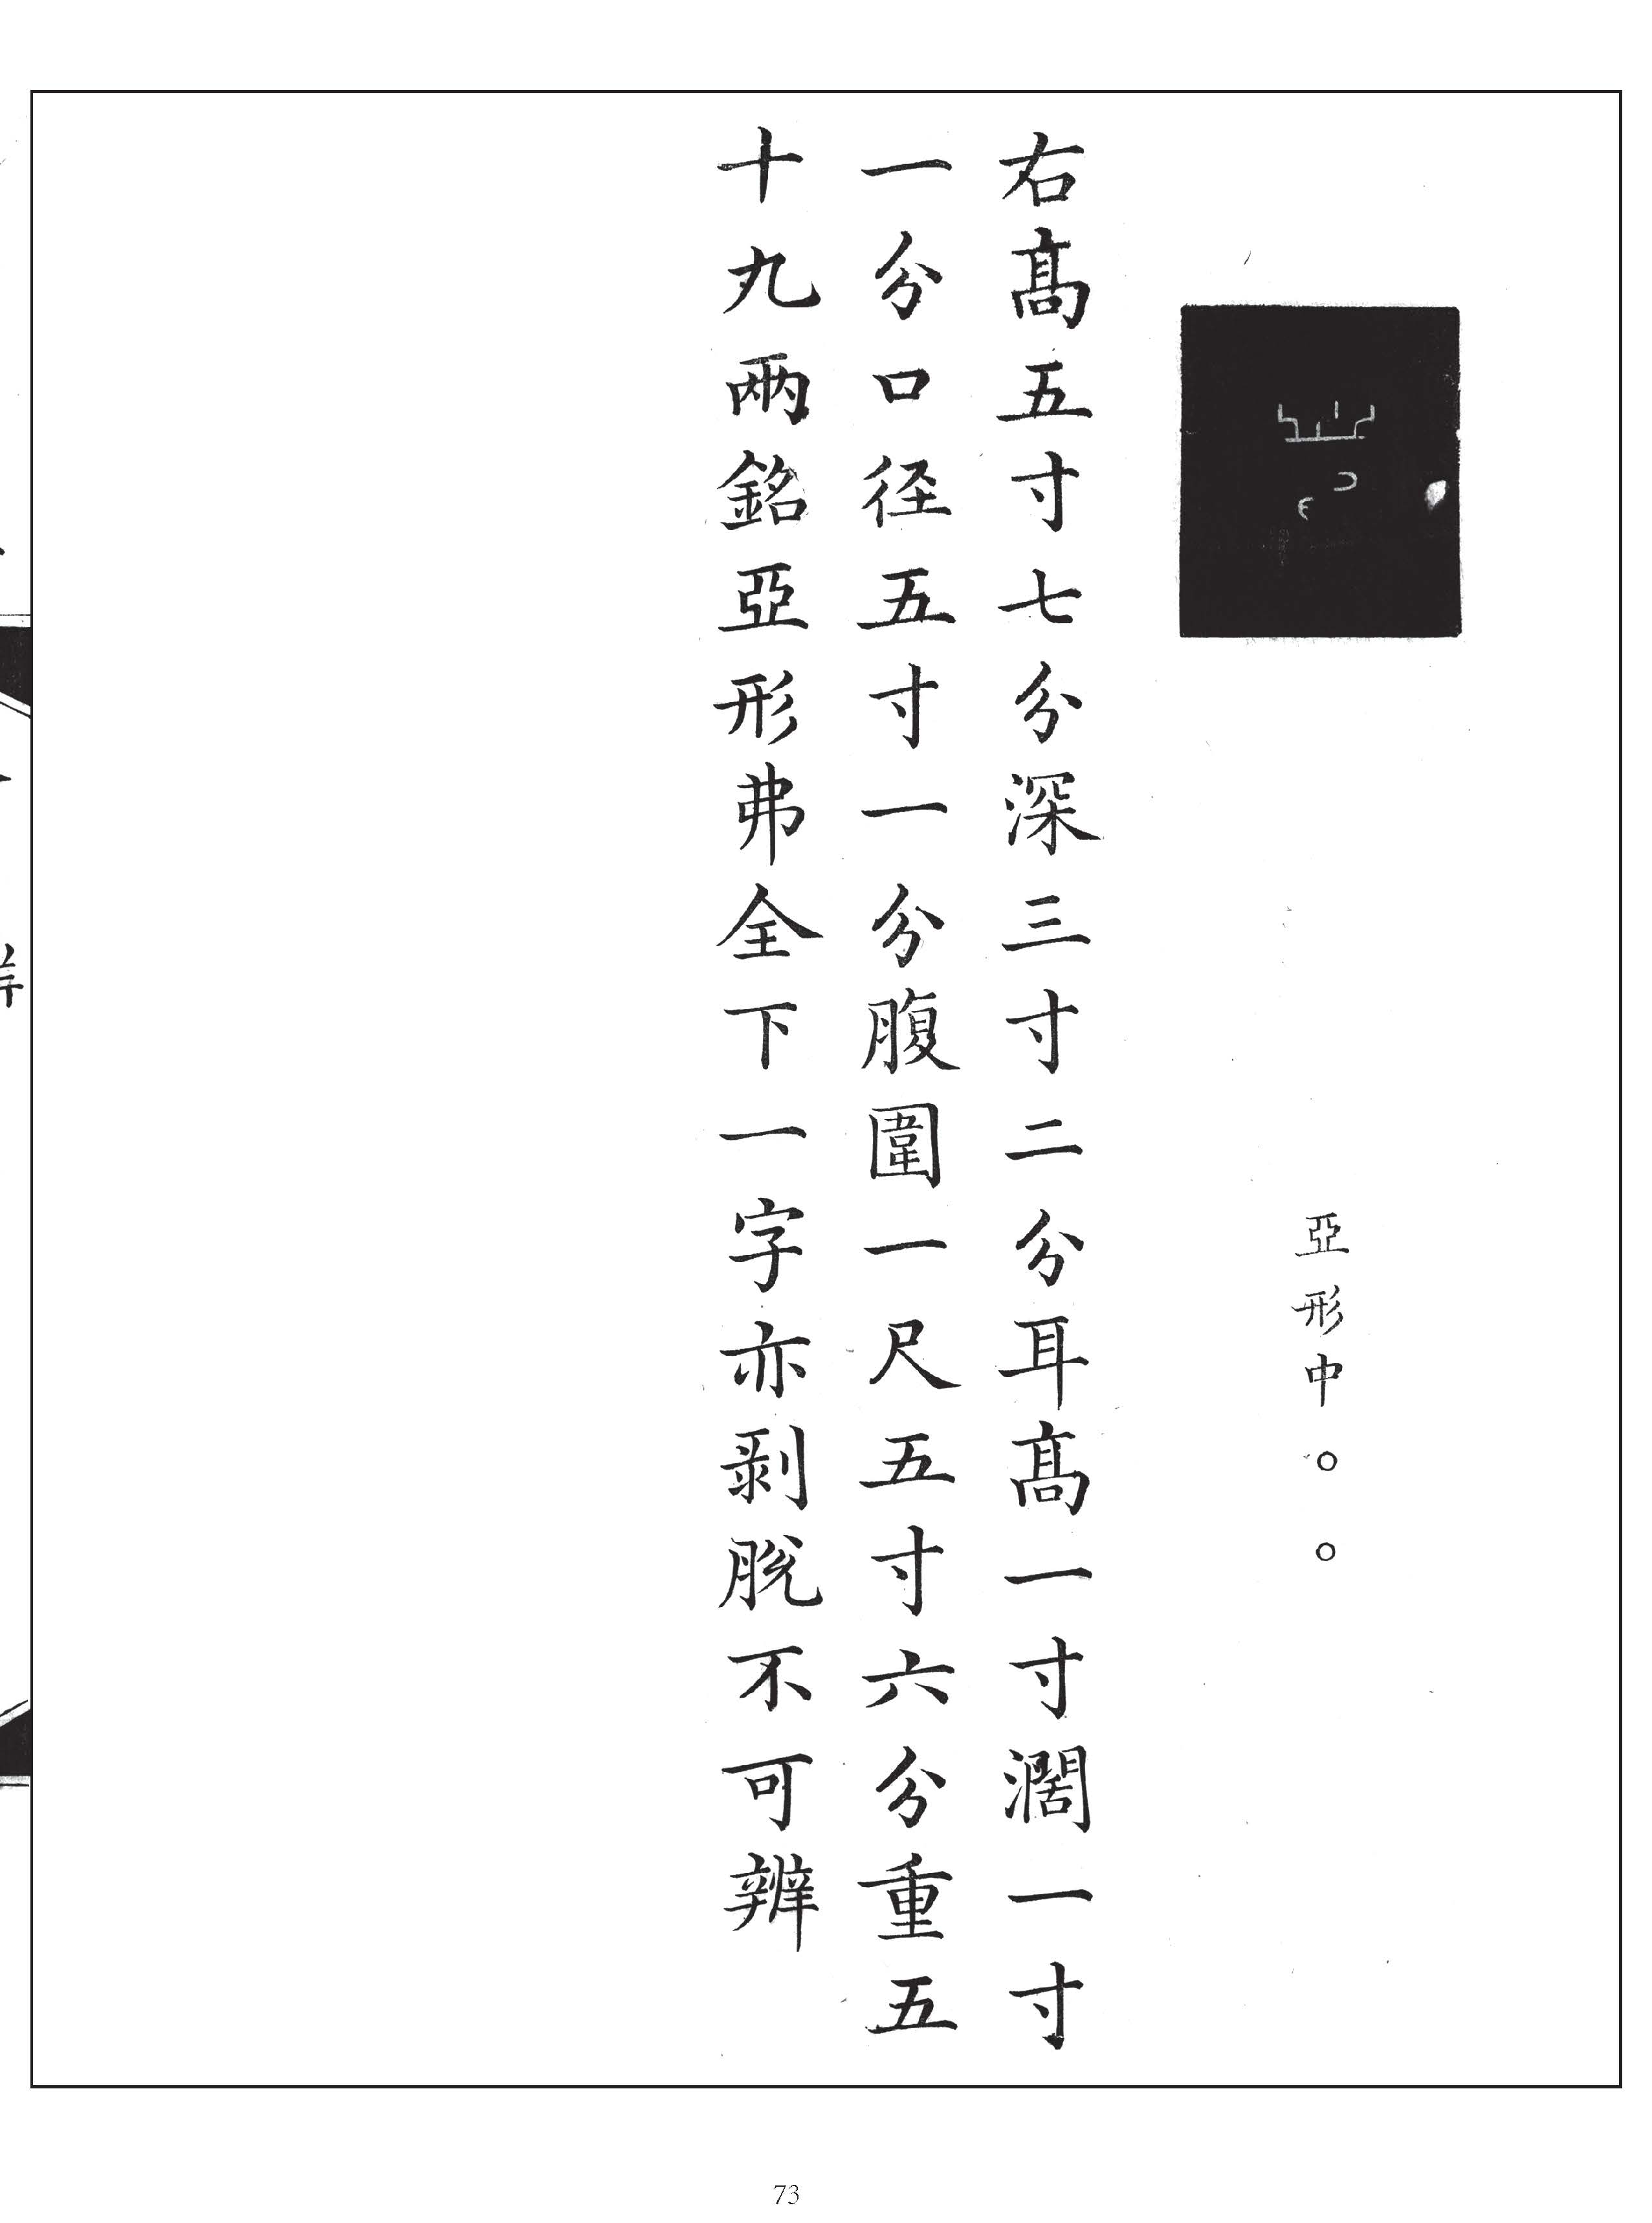 亞形中○○
右髙五寸七分深三寸二分耳髙一寸濶一寸
一分口径五寸一分腹圍一尺五寸六分重五
十九兩銘亞形弗全下一字亦剥脱不可辨
73